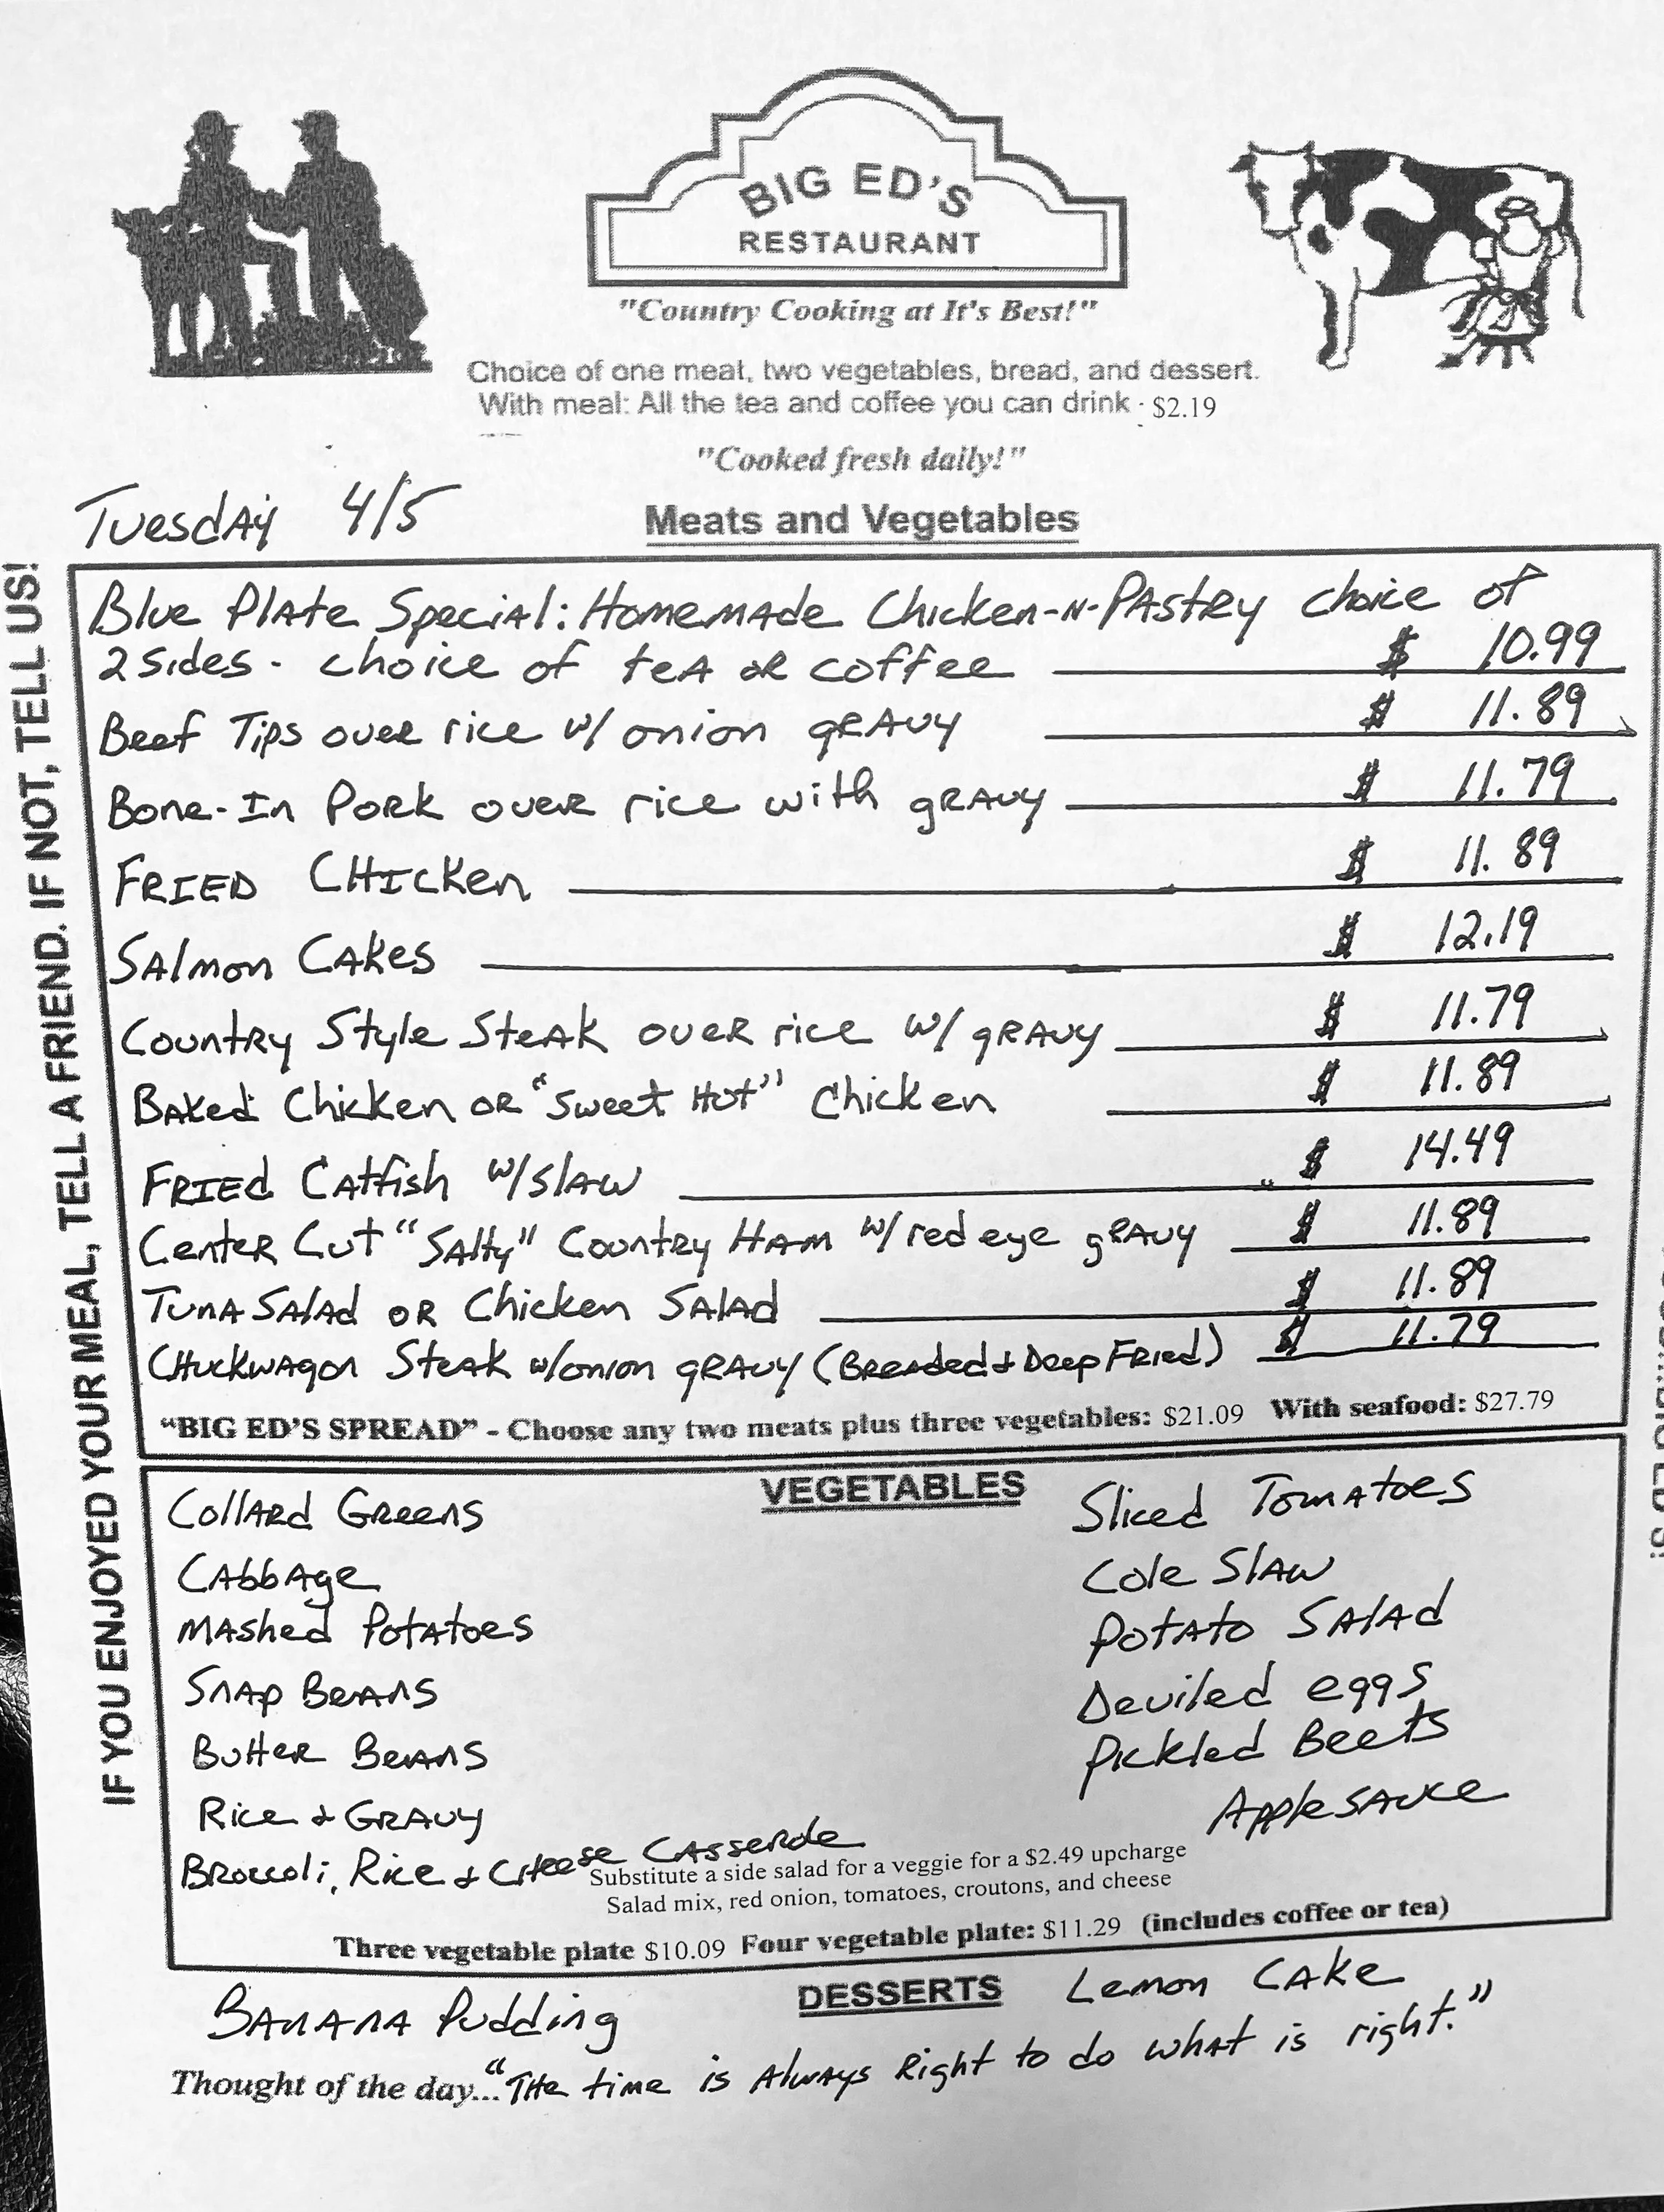 BIG ED'S
RESTAURANT
"Country Cooking at It's Best!"
Choice of one meat, two vegetables, bread, and dessert.
With meal: All the tea and coffee you can drink - $2.19
"Cooked fresh daily!"
Tuesday 4/5
Meats and Vegetables
Blue Plate Special: Homemade Chicken-N-Pastry choice of
2 sides - choice of tea or coffee $ 10.99
Beef Tips over rice w/ onion gravy $ 11.89
Bone-In Pork over rice with gravy $ 11.79
FRIED CHicken $ 11.89
Salmon Cakes $ 12.19
Country Style Steak over rice w/ gravy $ 11.79
Baked Chicken or "Sweet Hot" Chicken $ 11.89
FRIEd Catfish w/slaw $ 14.49
Center Cut "Salty" Country Ham w/ red eye gravy $ 11.89
Tuna Salad or Chicken Salad $ 11.89
CHuckwagon Steak w/onion gravy (Breaded & Deep Fried) $ 11.79
"BIG ED'S SPREAD" - Choose any two meats plus three vegetables: $21.09 With seafood: $27.79
VEGETABLES
Collard Greens
Cabbage
Mashed Potatoes
Snap Beans
Butter Beans
Rice & Gravy
Broccoli, Rice & CHeese Casserole
Sliced Tomatoes
Cole Slaw
Potato Salad
Deviled eggs
Pickled Beets
Applesauce
Substitute a side salad for a veggie for a $2.49 upcharge
Salad mix, red onion, tomatoes, croutons, and cheese
Three vegetable plate $10.09 Four vegetable plate: $11.29 (includes coffee or tea)
DESSERTS
Banana Pudding
Lemon Cake
Thought of the day..."THe time is Always Right to do what is right."
IF YOU ENJOYED YOUR MEAL, TELL A FRIEND. IF NOT, TELL US!